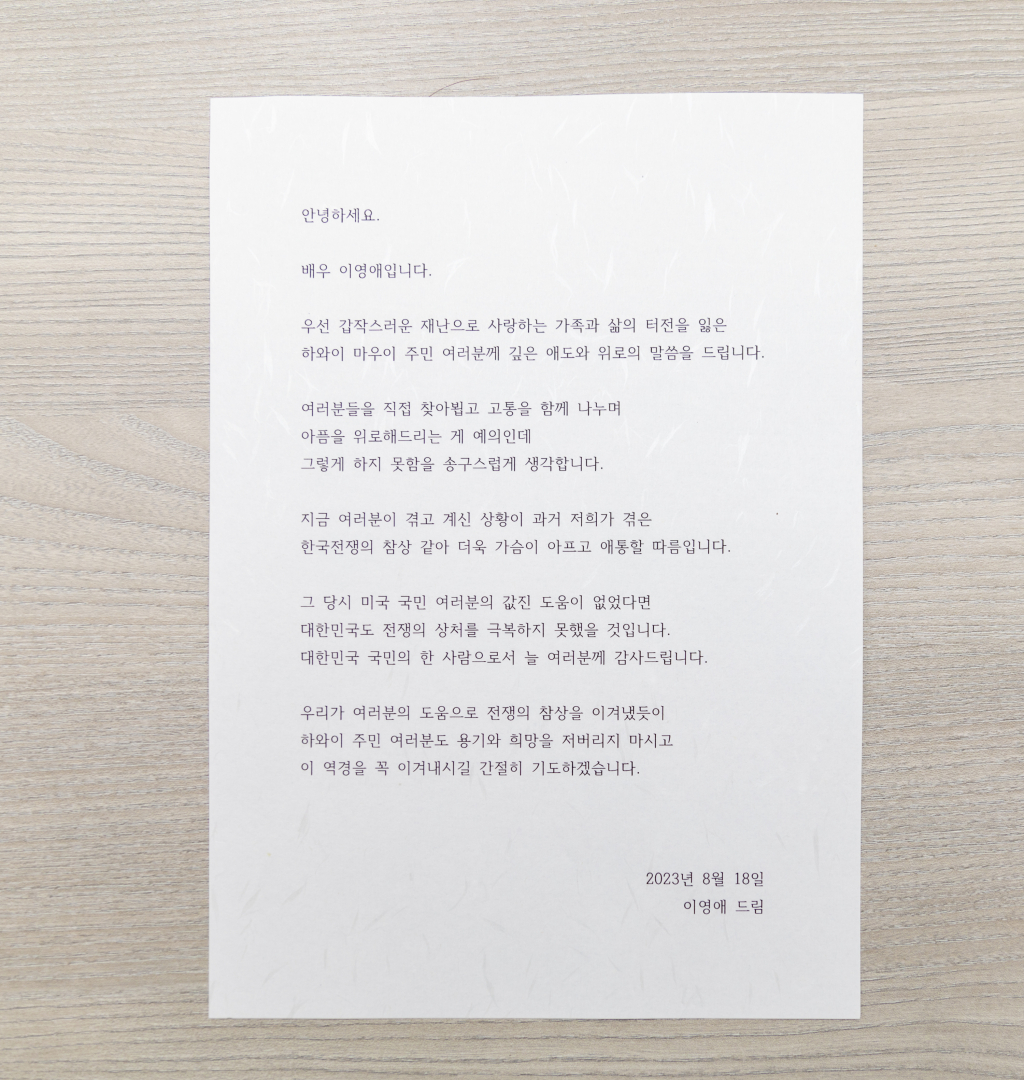 안녕하세요.
배우 이영애입니다.
우선 갑작스러운 재난으로 사랑하는 가족과 삶의 터전을 잃은
하와이 마우이 주민 여러분께 깊은 애도와 위로의 말씀을 드립니다.
여러분들을 직접 찾아뵙고 고통을 함께 나누며
아픔을 위로해드리는 게 예의인데
그렇게 하지 못함을 송구스럽게 생각합니다.
지금 여러분이 겪고 계신 상황이 과거 저희가 겪은
한국전쟁의 참상 같아 더욱 가슴이 아프고 애통할 따름입니다.
그 당시 미국 국민 여러분의 값진 도움이 없었다면
대한민국도 전쟁의 상처를 극복하지 못했을 것입니다.
대한민국 국민의 한 사람으로서 늘 여러분께 감사드립니다.
우리가 여러분의 도움으로 전쟁의 참상을 이겨냈듯이
하와이 주민 여러분도 용기와 희망을 저버리지 마시고
이 역경을 꼭 이겨내시길 간절히 기도하겠습니다.
2023년 8월 18일
이영애 드림